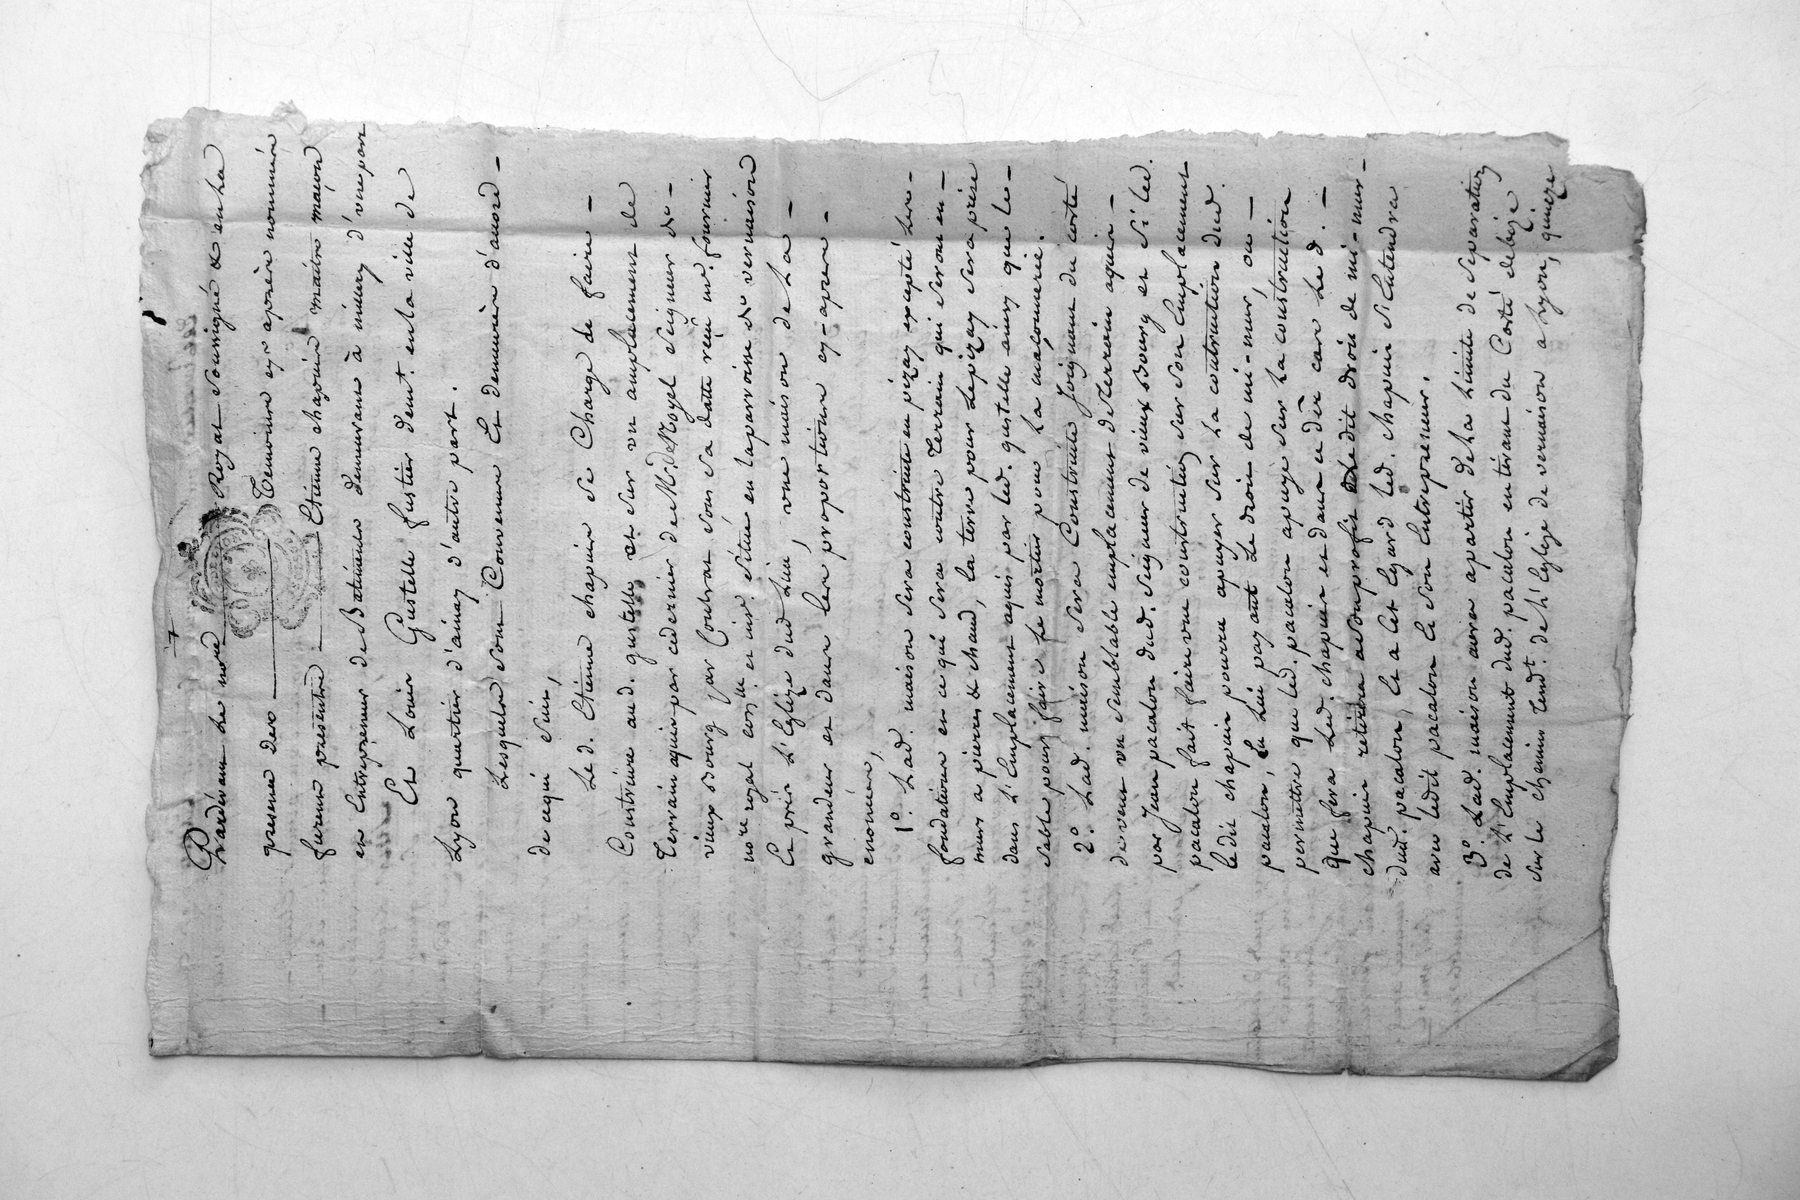 Pardevant Le no.re Royal soussigné & en La
presence des Temoins cy apres nommés
furent presents Etienne chapuis maitre maçon
en Entrepreneur de Batiments demeurant à miery d'une part
Et Louis Gustelle fustier demt. en la ville de
Lyon quartier d'ainay d'autre part.
Lesquels sont Convenus Et demeurés d'acord -
de cequi suit,
Led. Etienne chapuis se Charge de faire -
Construire aud. gustelle et sur un emplacement de
Terrain aquis par cedernier de Mr de Noyel seigneur de -
vieux Bourg par Contrat sous sa datte reçu me. fournier
no.re royal en la parroisse de vernaison
Et près L'Eglize dud Lieu, une maison de La -
grandeur et dans les proportions cy-apres -
enoncées,
1º. Lad. maison sera construite en pizay excepté Les -
fondations en ce qui sera contre Terrain qui seront en -
murs a pierres & chaud, la terre pour Le pizay sera prise
dans L'Emplacement aquis par led. gustelle ainsy que le -
sable pour faire Le mortier pour La maçonnerie.
2º. Lad. maison sera Construite joignant du coté
devent un semblable emplacement de Terrain aquis -
par Jean pacalon dud. seigneur de vieux Bourg et si led.
pacalon fait faire une construction sur son Emplacement
ledit chapuis pourra apuyer sur La construction dud.
pacalon, En Lui payant Le droit de mi-mur, ou -
permettre que led. pacalon apuye sur La construction
que fera Led. chapuis et dans ce der cas Le d. -
chapuis retirera a son profit Le dit droit de mi-mur -
dud. pacalon, Et a Cet Egard Led. chapuis s'Entendra
avec ledit pacalon Et son Entrepreneur.
3º Lad. maison aura a partir de La Limite de separation
de L'Emplacement dud. pacalon en tirant du Costé de bize
sur le chemin tendt. de L'Eglize de vernaison a Lyon, quinze